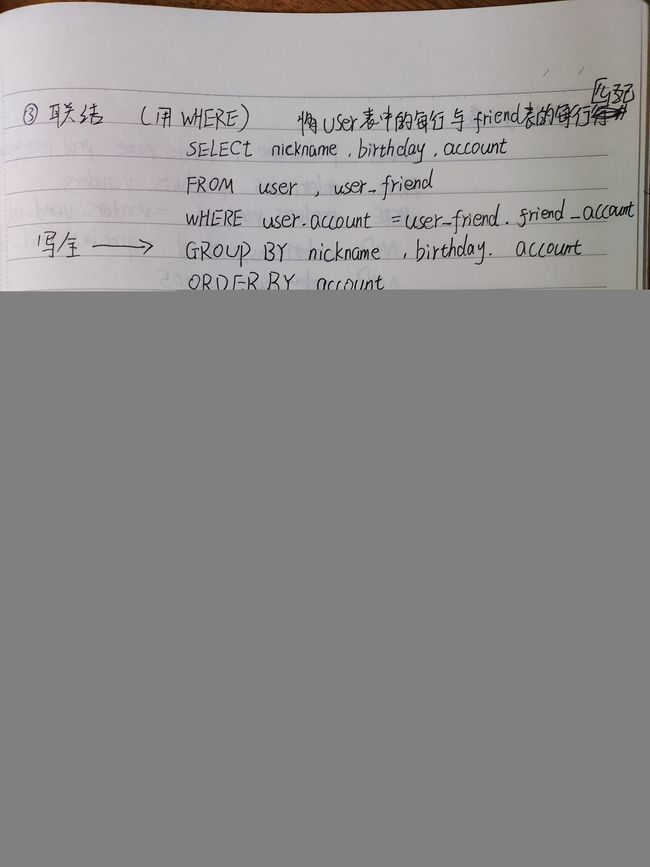 ③ 联结 (用 WHERE) 将user表中的每行与friend表的每行匹配
SELECT nickname , birthday , account
FROM user , user_friend
WHERE user.account = user_friend.friend_account
写全 → GROUP BY nickname , birthday , account
ORDER BY account